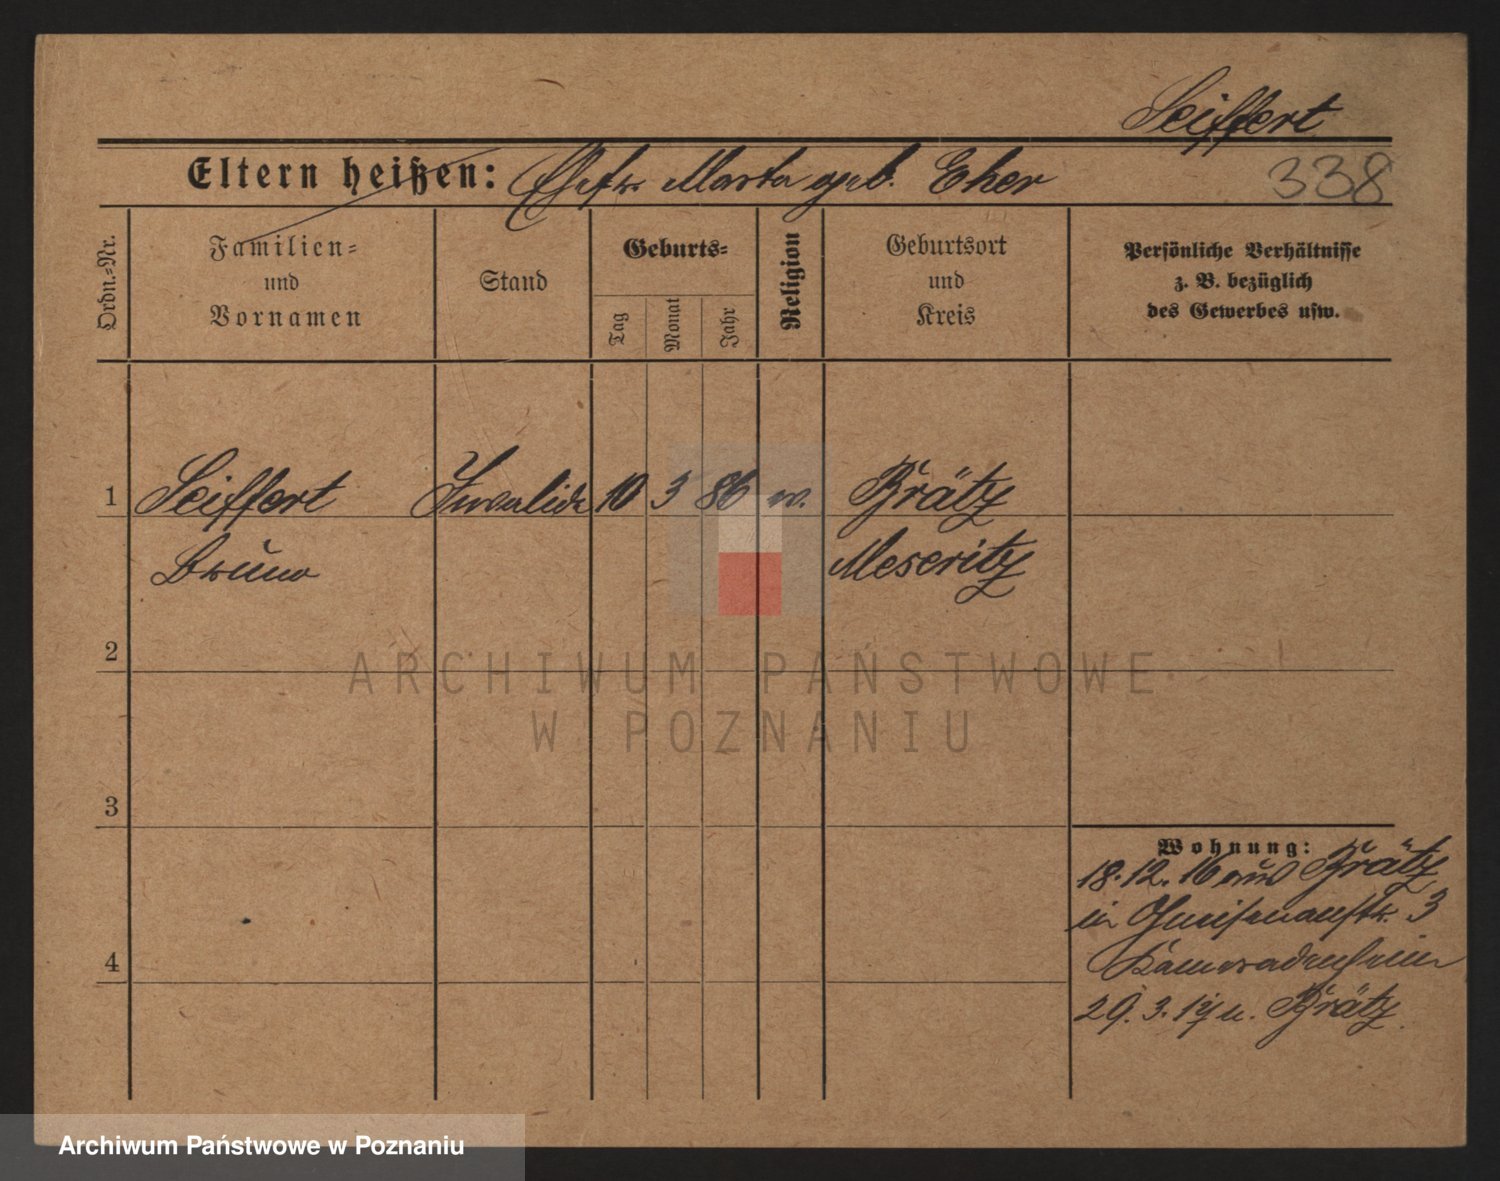 Seiffert
Eltern heißen: Ehefr. Marta geb. Eher
338
Ordn.-Nr.
Familien-
und
Vornamen
Stand
Geburts-
Tag
Monat
Jahr
Religion
Geburtsort
und
Kreis
Persönliche Verhältnisse
z. B. bezüglich
des Gewerbes usw.
1 Seiffert Invalide 10 3 86 Brätz
Bruno Meseritz
2
3
4
Wohnung:
18.12.16 aus Brätz
in Gneisenaustr. 3
Kameradenheim
29.3.17 n. Brätz
ARCHIWUM PAŃSTWOWE
W POZNANIU
Archiwum Państwowe w Poznaniu